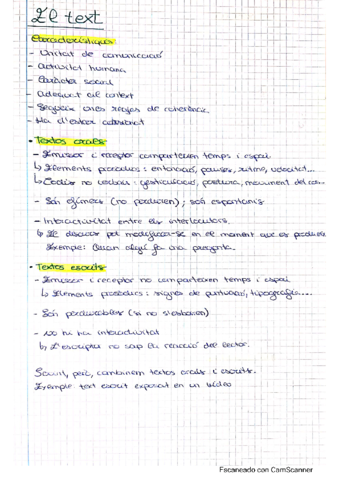 El text
Característiques:
- Unitat de comunicació
- Activitat humana
- Caràcter social
- Adequat al context
- Segueix unes regles de coherència
- Ha d'estar cohesionat
• Textos orals
- Emissor i receptor comparteixen temps i espai
↳ Elements prosòdics: entonació, pauses, ritme, velocitat...
↳ Codis no verbals: gesticulació, postura, moviment del cos...
- Són efímers (no perduren); són espontanis.
- Interactivitat entre els interlocutors.
↳ El discurs pot modificar-se en el moment que es produeix
Exemple: Quan algú fa una pregunta.
• Textos escrits
- Emissor i receptor no comparteixen temps i espai
↳ Elements prosòdics: signes de puntuació, tipografia...
- Són perdurables (si no s'esborren)
- No hi ha interactivitat
↳ L'escriptor no sap la reacció del lector.
Sovint, però, combinem textos orals i escrits.
Exemple text escrit exposat en un vídeo
Escaneado con CamScanner